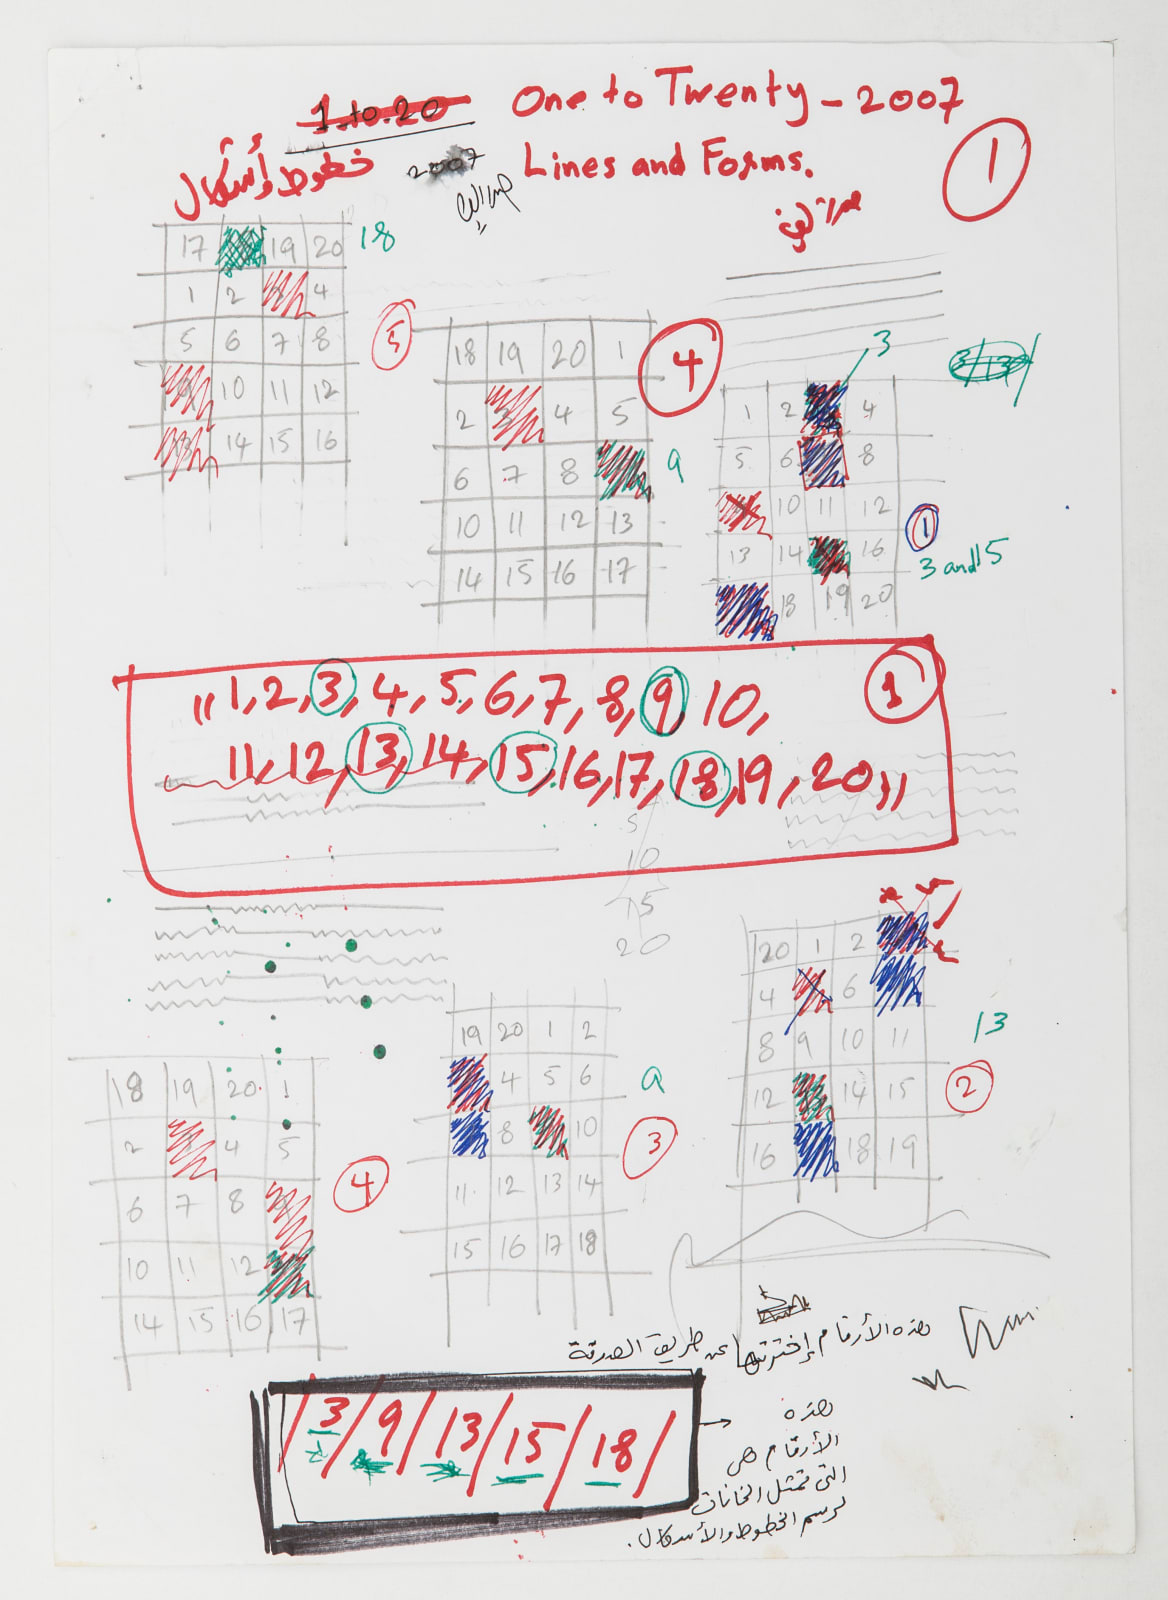 1.to.20
One to Twenty - 2007
خطوط وأشكال
2007
Lines and Forms.
1
17 19 20
18
1 2 4
5 6 7 8
10 11 12
14 15 16
5
18 19 20 1
2 3 4 5
6 7 8
9
10 11 12 13
14 15 16 17
4
3
3/13
1 2 4
5 6 8
10 11 12
13 14 16
18 19 20
1
3 and 15
1
"1, 2, 3, 4, 5, 6, 7, 8, 9, 10,
11, 12, 13, 14, 15, 16, 17, 18, 19, 20"
5
10
15
20
20 1 2
4 6
8 9 10 11
12 14 15
16 18 19
13
2
19 20 1 2
4 5 6
8 10
11 12 13 14
15 16 17 18
9
3
18 19 20 1
2 4 5
6 7 8
10 11 12
14 15 16 17
4
هذه الأرقام إخترتها عن طريق الصدفة
/3/9/13/15/18/
هذه
الأرقام هي
التي تمثل الخانات
لرسم الخطوط والأشكال.